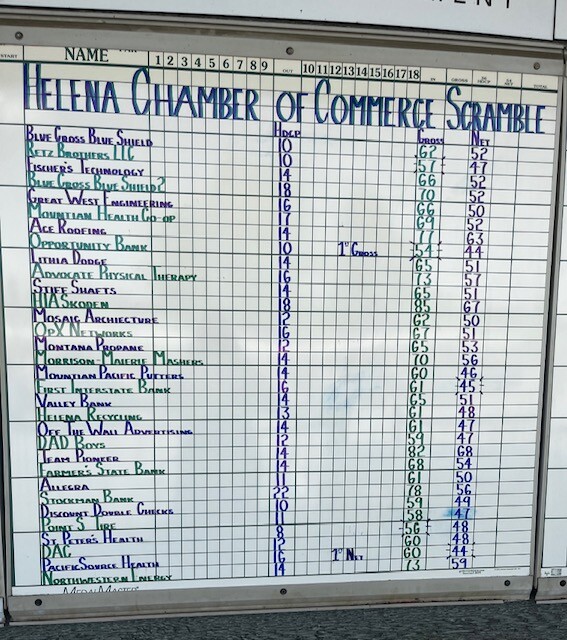 START NAME PAR 1 2 3 4 5 6 7 8 9 OUT 10 11 12 13 14 15 16 17 18 IN GROSS TOTAL
HELENA CHAMBER OF COMMERCE SCRAMBLE
HDCP GROSS NET
BLUE CROSS BLUE SHIELD 10 62 52
RETZ BROTHERS LLC 10 57 47
FISCHER'S TECHNOLOGY 14 66 52
BLUE CROSS BLUE SHIELD 2 18 70 52
GREAT WEST ENGINEERING 16 66 50
MOUNTIAN HEALTH CO-OP 17 69 52
ACE ROOFING 14 77 63
OPPORTUNITY BANK 10 1º GROSS 54 44
LITHIA DODGE 14 65 51
ADVOCATE PHYSICAL THERAPY 16 73 57
STIFF SHAFTS 14 65 51
HIA SKODEN 18 85 67
MOSAIC ARCHITECTURE 12 62 50
OPX NETWORKS 16 67 51
MONTANA PROPANE 12 65 53
MORRISON-MAIERLE MASHERS 14 70 56
MOUNTIAN PACIFIC PUTTERS 14 60 46
FIRST INTERSTATE BANK 16 61 45
VALLEY BANK 14 65 51
HELENA RECYCLING 13 61 48
OFF THE WALL ADVERTISING 14 61 47
DAD BOYS 12 59 47
TEAM PIONEER 14 82 68
FARMER'S STATE BANK 14 68 54
ALLEGRA 11 61 50
STOCKMAN BANK 22 78 56
DISCOUNT DOUBLE CHECKS 10 59 49
POINT S TIRE 11 58 47
ST. PETER'S HEALTH 8 56 48
DAC 12 60 48
PACIFICSOURCE HEALTH 16 1º NET 60 44
NORTHWESTERN ENERGY 14 73 59